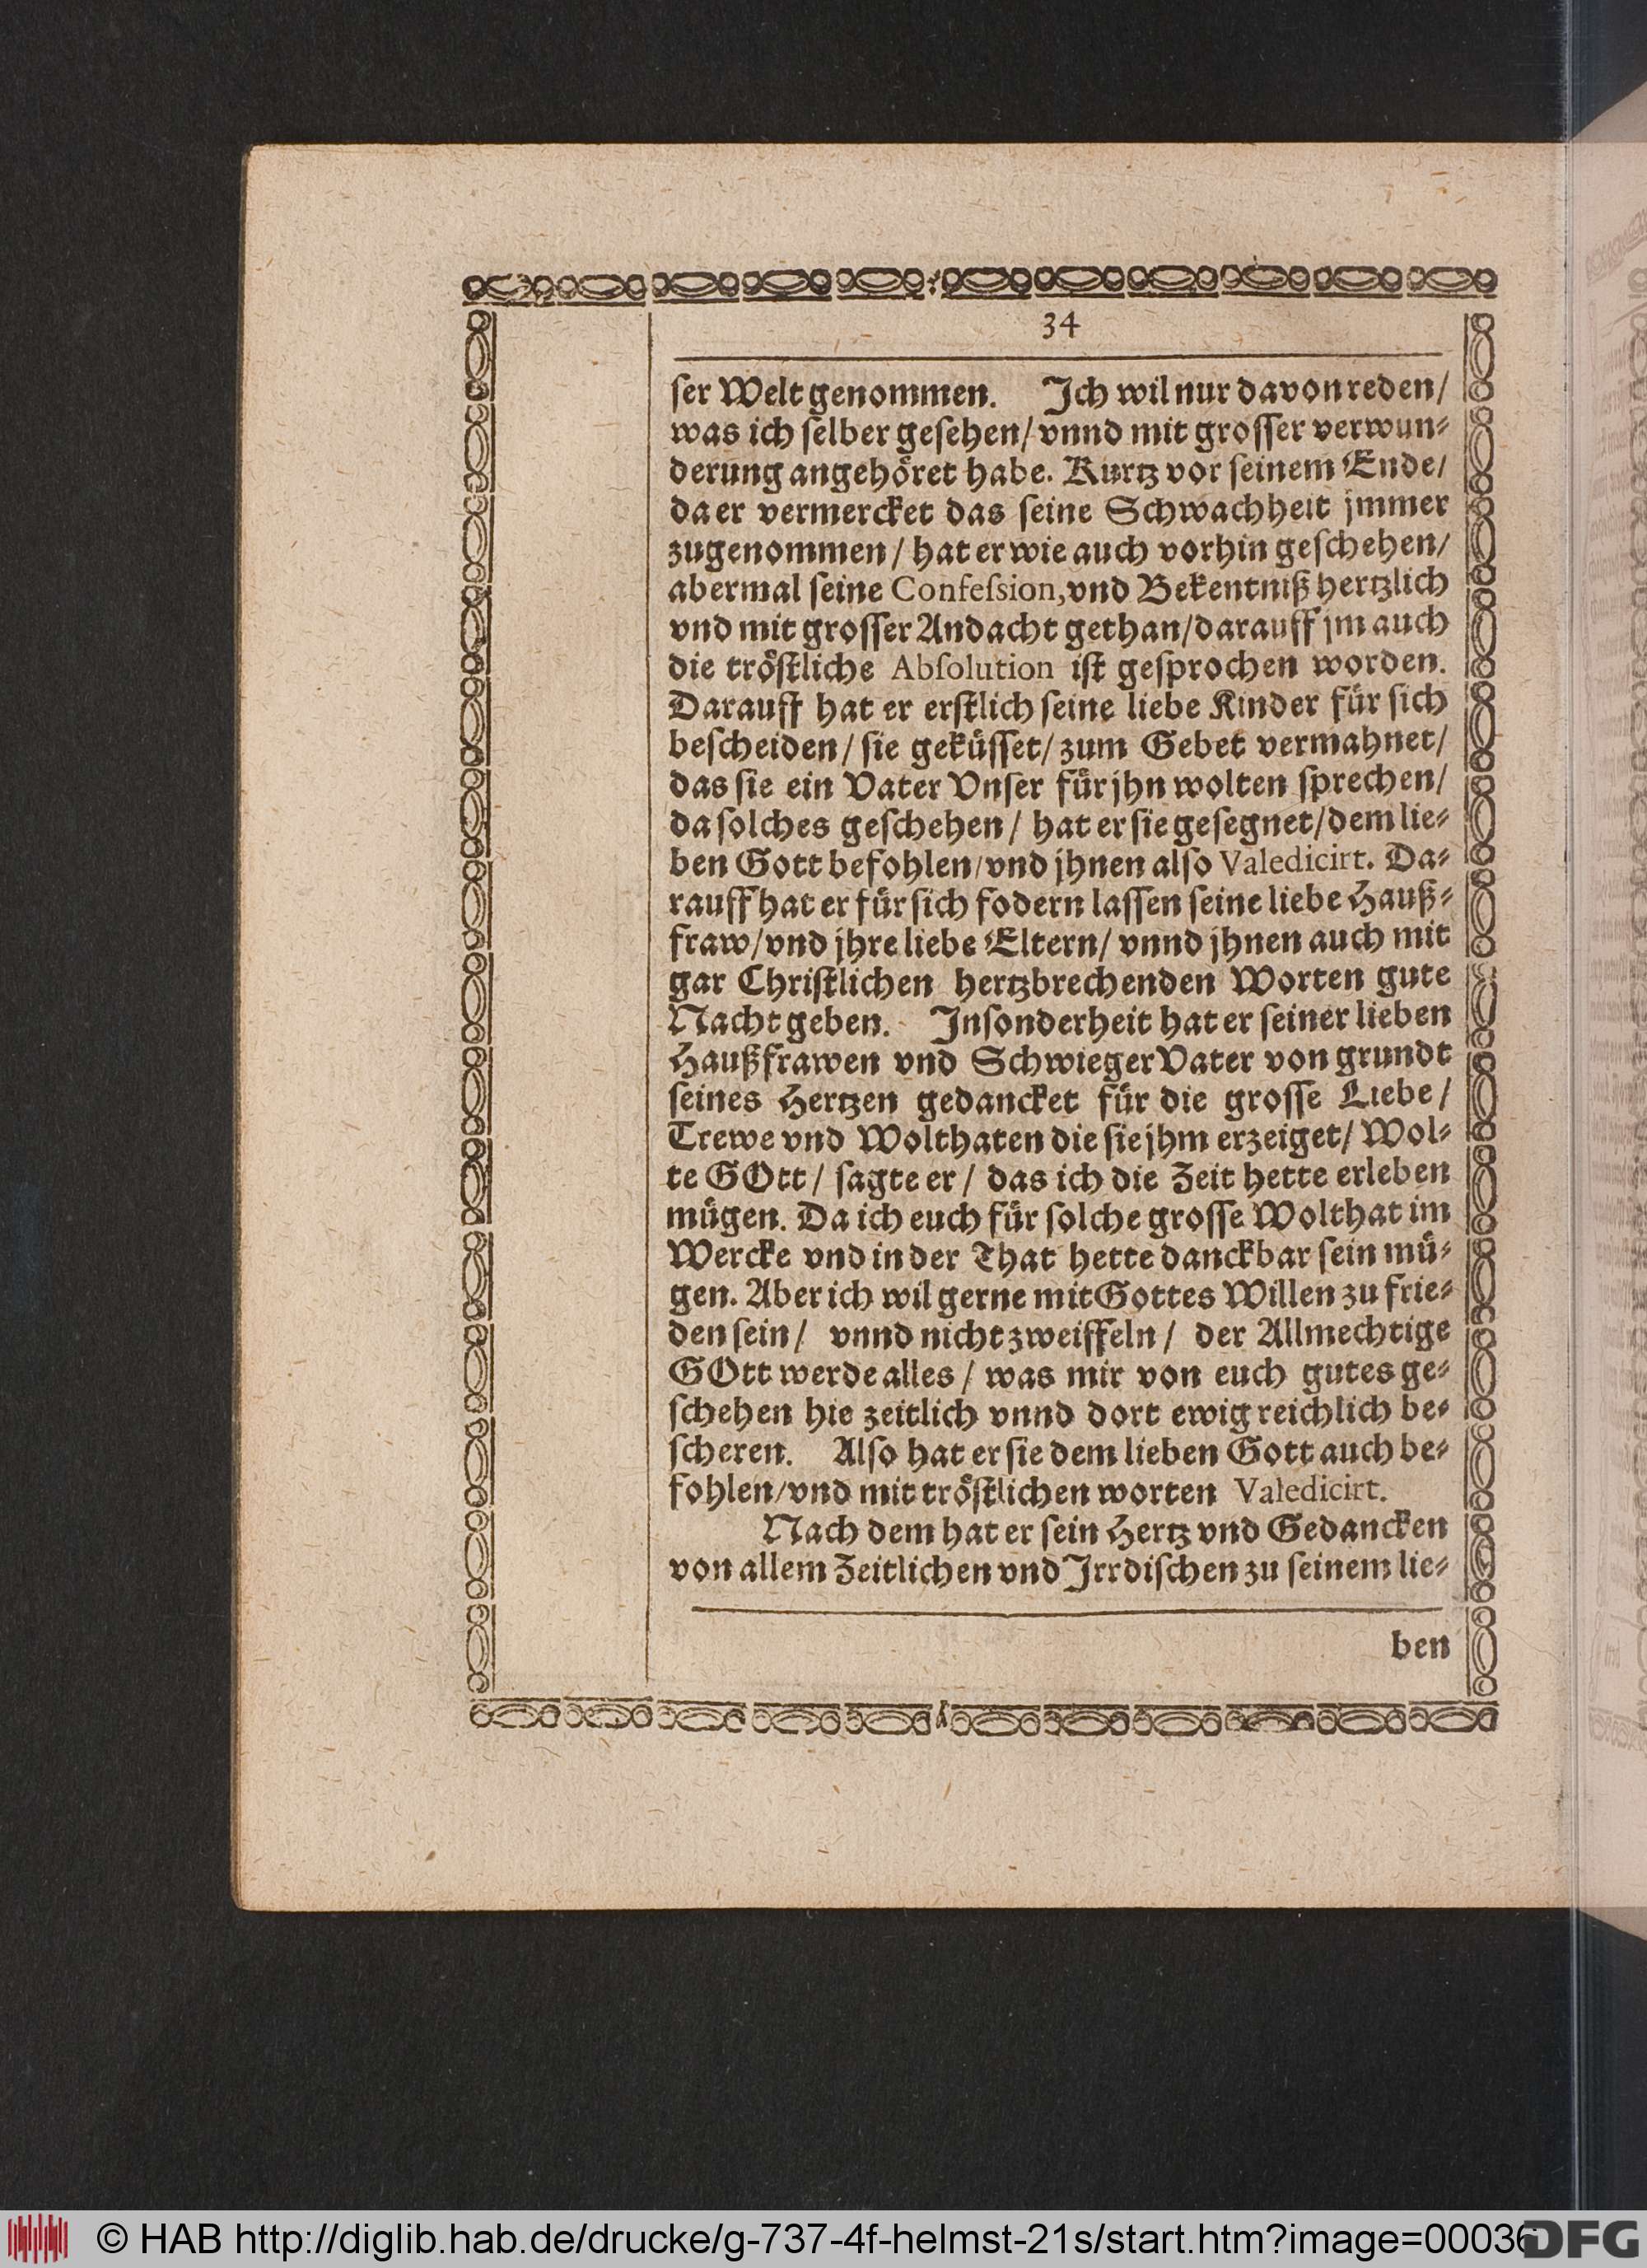 34
ſer Welt genommen. Ich wil nur davon reden/
was ich ſelber geſehen/ vnnd mit groſſer verwun⸗
derung angehöret habe. Kurtz vor ſeinem Ende/
da er vermercket das ſeine Schwachheit jmmer
zugenommen/ hat er wie auch vorhin geſchehen/
abermal ſeine Confeſsion, vnd Bekentniß hertzlich
vnd mit groſſer Andacht gethan/ darauff jm auch
die tröſtliche Abſolution iſt geſprochen worden.
Darauff hat er erſtlich ſeine liebe Kinder für ſich
beſcheiden/ ſie geküſſet/ zum Gebet vermahnet/
das ſie ein Vater Vnſer für jhn wolten ſprechen/
da ſolches geſchehen/ hat er ſie geſegnet/ dem lie⸗
ben Gott befohlen/ vnd jhnen alſo Valedicirt. Da⸗
rauff hat er für ſich fodern laſſen ſeine liebe Hauß⸗
fraw/ vnd jhre liebe Eltern/ vnnd jhnen auch mit
gar Chriſtlichen hertzbrechenden Worten gute
Nacht geben. Inſonderheit hat er ſeiner lieben
Haußfrawen vnd SchwiegerVater von grundt
ſeines Hertzen gedancket für die groſſe Liebe/
Trewe vnd Wolthaten die ſie jhm erzeiget/ Wol⸗
te GOtt/ ſagte er/ das ich die Zeit hette erleben
mügen. Da ich euch für ſolche groſſe Wolthat im
Wercke vnd in der That hette danckbar ſein mü⸗
gen. Aber ich wil gerne mit Gottes Willen zu frie⸗
den ſein/ vnnd nicht zweiffeln/ der Allmechtige
GOtt werde alles/ was mir von euch gutes ge⸗
ſchehen hie zeitlich vnnd dort ewig reichlich be⸗
ſcheren. Alſo hat er ſie dem lieben Gott auch be⸗
fohlen/ vnd mit tröſtlichen worten Valedicirt.
Nach dem hat er ſein Hertz vnd Gedancken
von allem Zeitlichen vnd Irrdiſchen zu ſeinem lie⸗
ben
© HAB http://diglib.hab.de/drucke/g-737-4f-helmst-21s/start.htm?image=00036
DFG